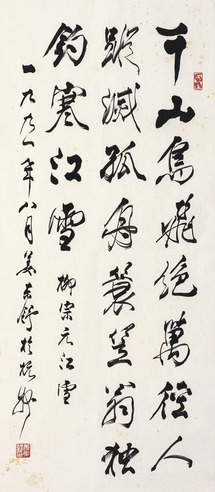 千山鳥飛絕萬徑人
蹤滅孤舟蓑笠翁獨
釣寒江雪 柳宗元江雪
一九九一年八月姜東舒於杭州